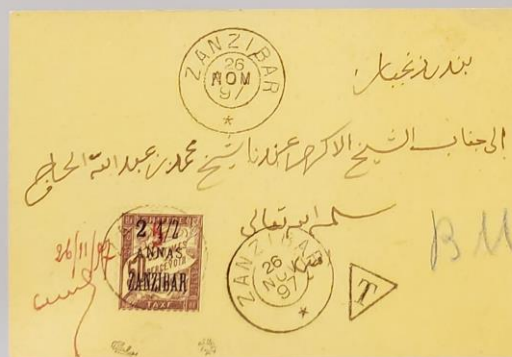 ZANZIBAR
26
NOV
97
بندر زنجبار
إلى جناب الشيخ الاكرم عزيزنا الشيخ محمد بن عبد الله الحاج
سلمه الله تعالى
26/11/97
2 1/2
ANNAS
ZANZIBAR
TAXE
ZANZIBAR
26
NOV
97
T